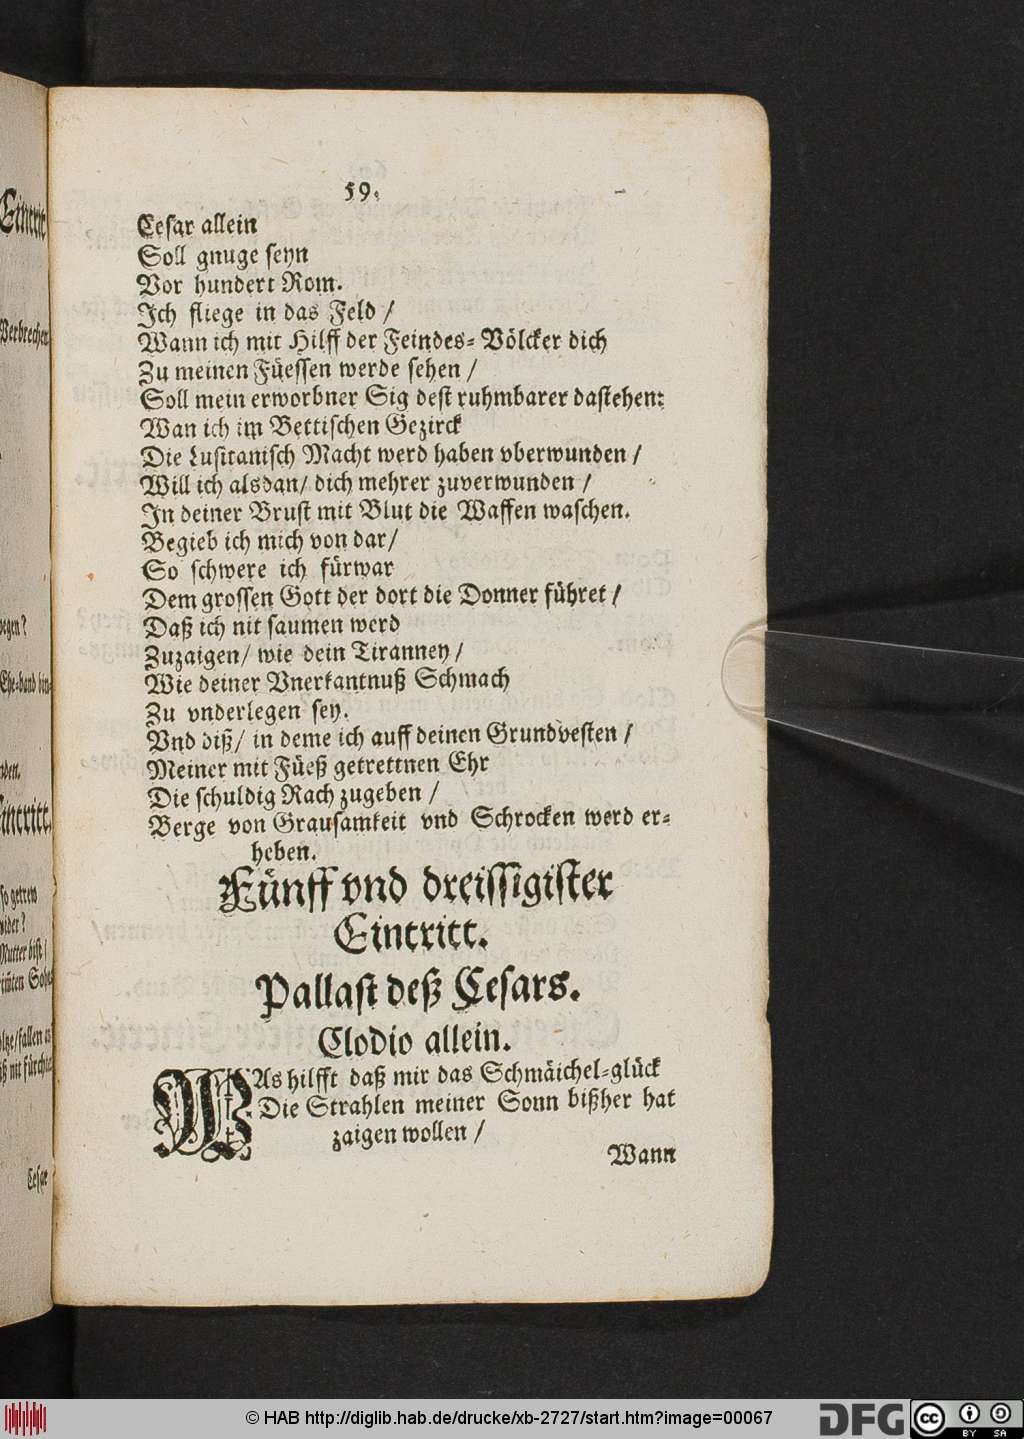 59.
Cesar allein
Soll gnuge seyn
Vor hundert Rom.
Ich fliege in das Feld /
Wann ich mit Hilff der Feindes= Völcker dich
Zu meinen Füessen werde sehen /
Soll mein erworbner Sig dest ruhmbarer dastehen:
Wan ich im Bettischen Gezirck
Die Lusitanisch Macht werd haben vberwunden /
Will ich alsdan/ dich mehrer zuverwunden /
In deiner Brust mit Blut die Waffen waschen.
Begieb ich mich von dar/
So schwere ich fürwar
Dem grossen Gott der dort die Donner führet /
Daß ich nit saumen werd
Zuzaigen/ wie dein Tiranney /
Wie deiner Vnerkantnuß Schmach
Zu vnderlegen sey.
Vnd diß/ in deme ich auff deinen Grundvesten /
Meiner mit Füeß getrettnen Ehr
Die schuldig Rach zugeben /
Berge von Grausamkeit vnd Schrocken werd er=
heben.
Fünff vnd dreissigister
Eintritt.
Pallast deß Cesars.
Clodio allein.
WAs hilfft daß mir das Schmäichel=glück
Die Strahlen meiner Sonn bißher hat
zaigen wollen /
Wann
Eintrit
Verbrechen
Ehe=band bin=
Eintritt.
so getrew
Mutter bist /
Cesar
© HAB http://diglib.hab.de/drucke/xb-2727/start.htm?image=00067
DFG
cc
BY SA